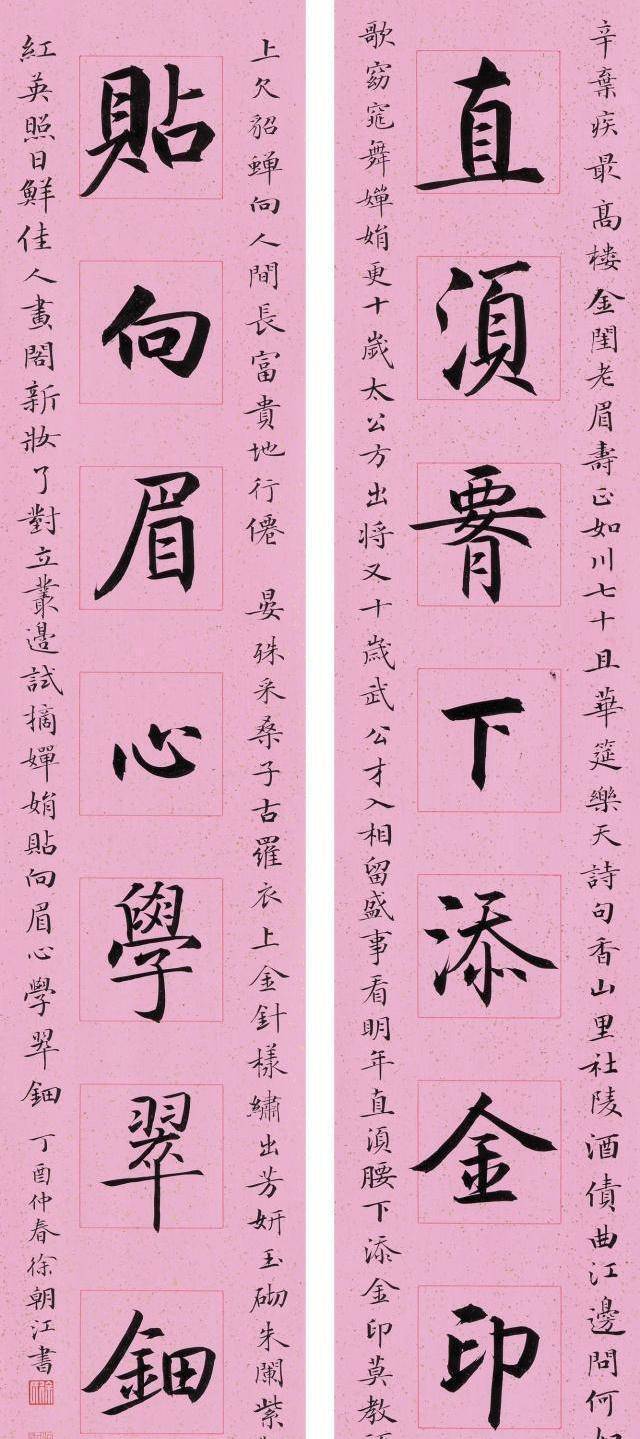 辛棄疾最高樓金閨老眉壽正如川七十且華筵樂天詩句香山里杜陵酒債曲江邊問何
直須腰下添金印
歌窈窕舞嬋娟更十歲太公方出將又十歲武公才入相留盛事看明年直須腰下添金印莫教
上欠貂蟬向人間長富貴地行僊 晏殊采桑子古羅衣上金針樣繡出芳妍玉砌朱闌紫
貼向眉心學翠鈿
紅英照日鮮佳人畫閣新妝了對立叢邊試摘嬋娟貼向眉心學翠鈿 丁酉仲春徐朝江書